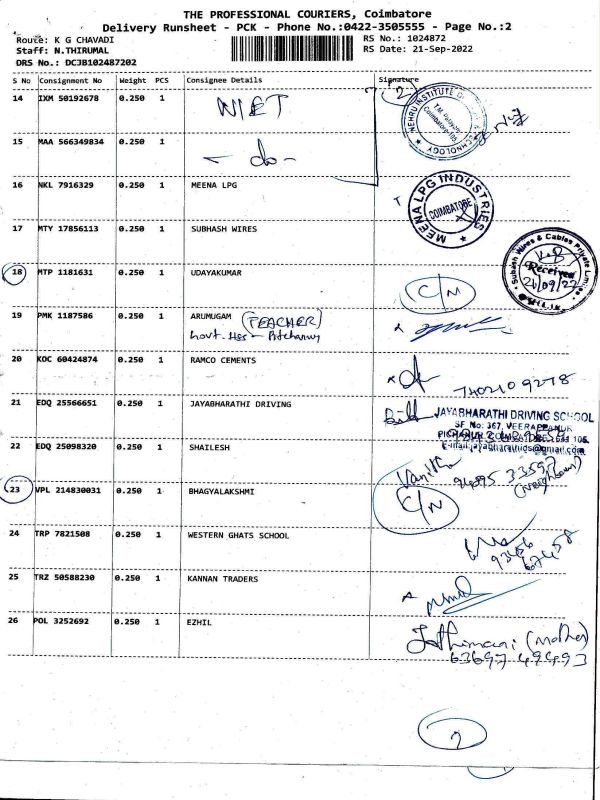 THE PROFESSIONAL COURIERS, Coimbatore
Delivery Runsheet - PCK - Phone No.:0422-3505555 - Page No.:2
Route: K G CHAVADI
RS No.: 1024872
Staff: N.THIRUMAL
RS Date: 21-Sep-2022
DRS No.: DCJB102487202
S No Consignment No Weight PCS Consignee Details Signature
14 IXM 50192678 0.250 1 NIET 2
NEHRU INSTITUTE TECHNOLOGY
Coimbatore-105
15 MAA 566349834 0.250 1 - do -
16 NKL 7916329 0.250 1 MEENA LPG
MEENA LPG INDUSTRIES
COIMBATORE
17 MTY 17856113 0.250 1 SUBHASH WIRES
Subash Wires & Cables Private Limited
Received
21/09/22
18 MTP 1181631 0.250 1 UDAYAKUMAR C/N
19 PMK 1187586 0.250 1 ARUMUGAM (TEACHER)
Govt. Hss - Pitchanur
20 KOC 60424874 0.250 1 RAMCO CEMENTS
7402109278
21 EDQ 25566651 0.250 1 JAYABHARATHI DRIVING
JAYABHARATHI DRIVING SCHOOL
SF No: 367, VEERAPPANUR
22 EDQ 25098320 0.250 1 SHAILESH
Vanitha
(neighbour)
23 VPL 214830031 0.250 1 BHAGYALAKSHMI C/N
24 TRP 7821508 0.250 1 WESTERN GHATS SCHOOL
25 TRZ 50588230 0.250 1 KANNAN TRADERS
26 POL 3252692 0.250 1 EZHIL
Jothimani (mother)
63697 49493
2